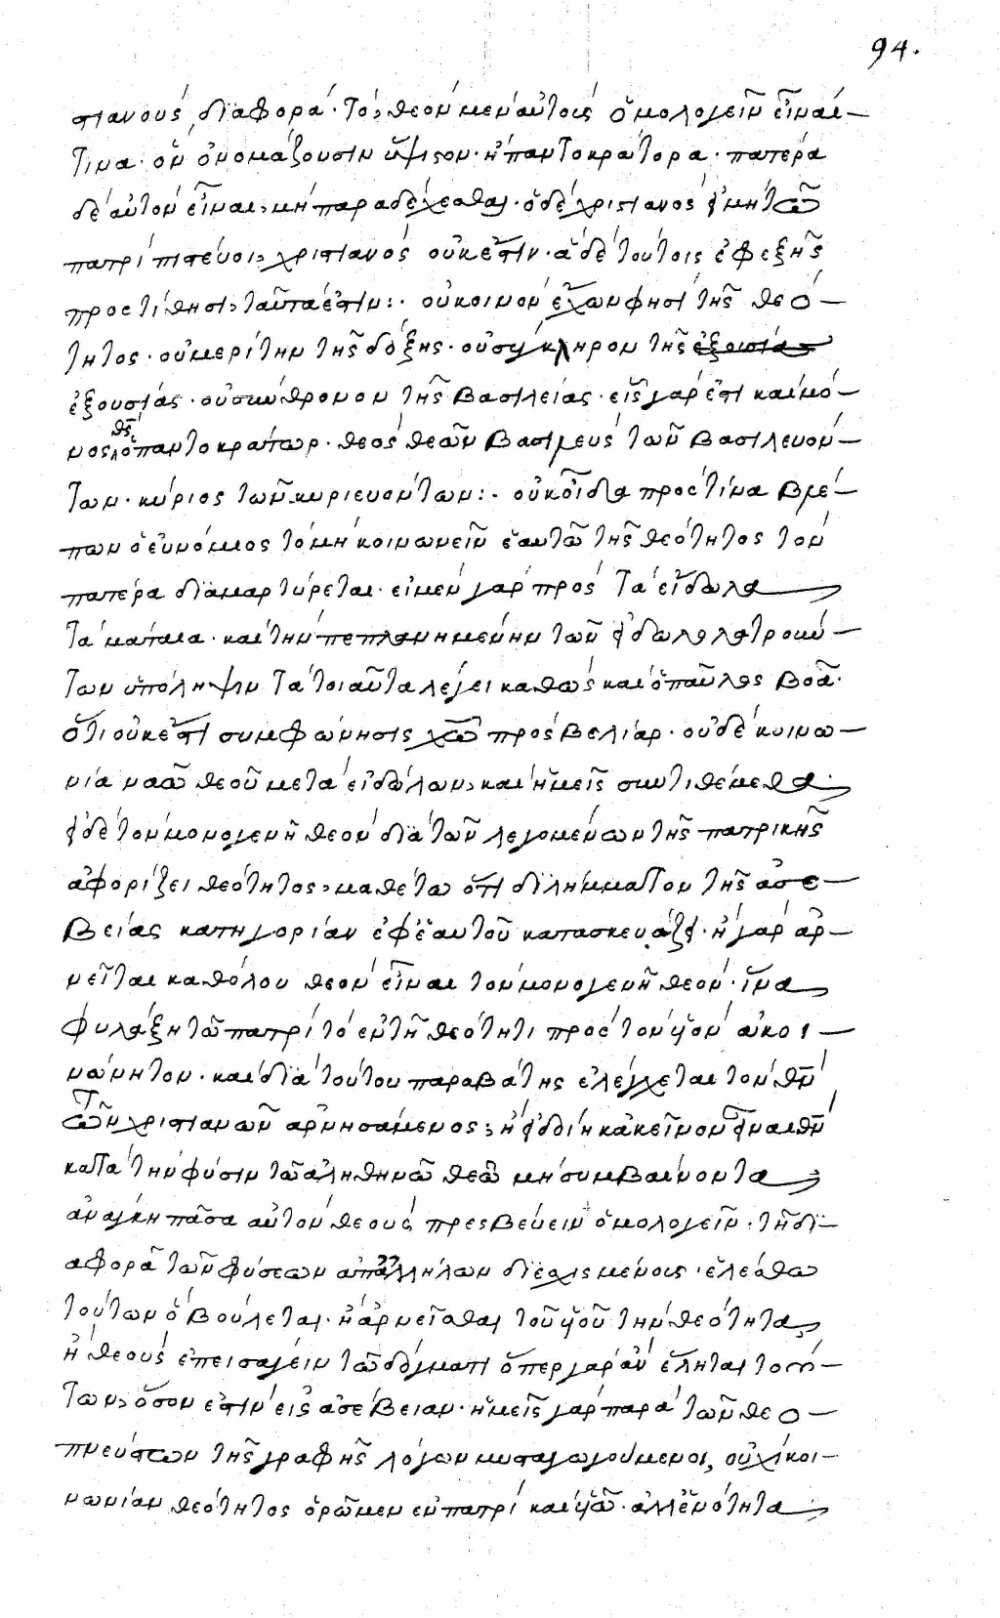 94.
στιανοὺς διαφορά· τὸ, θεὸν μὲν αὐτοὺς ὁμολογεῖν εἶναί
τινα· ὃν ὀνομάζουσιν ὕψιστον· ἢ παντοκράτορα· πατέρα
δὲ αὐτὸν εἶναι, μὴ παραδέχεσθαι· ὁ δὲ χριστιανὸς εἰ μὴ τῶ
πατρὶ πιστεύοι, χριστιανὸς οὐκ ἔστιν· ἃ δὲ τούτοις ἐφεξῆς
προστίθησι, ταῦτα ἐστιν:· οὐ κοινὸν ἔχων φησὶ τῆς θεό–
τητος· οὐ μερίτην τῆς δόξης· οὐ σύγκληρον τῆς ἐξουσίας
ἐξουσίας· οὐ σύνθρονον τῆς βασιλείας· εἷς γάρ ἐστι καὶ μό–
νος θς ὁ παντοκράτωρ· θεὸς θεῶν βασιλεὺς τῶν βασιλευόν–
των· κύριος τῶν κυριευόντων:· οὐκ οἶδα πρὸς τίνα βλέ–
πων ὁ εὐνόμιος τὸ μὴ κοινωνεῖν ἑαυτῶ τῆς θεότητος τὸν
πατέρα διαμαρτύρεται· εἰ μὲν γὰρ πρὸς τὰ εἴδωλα
τὰ μάταια· καὶ τὴν πεπλανημένην τῶν εἰδωλολατρούν–
των ὑπόληψιν τὰ τοιαῦτα λέγει καθὼς καὶ ὁ παῦλος βοᾶ·
ὅτι οὐκ ἔστι συμφώνησις χῶ πρὸς βελίαρ· οὐδὲ κοινω–
νία ναῶ θεοῦ μετὰ εἰδώλων, καὶ ἡμεῖς συντιθέμεθα·
εἰ δὲ τὸν μονογενῆ θεὸν διὰ τῶν λεγομένων τῆς πατρικῆς
ἀφορίζει θεότητος, μαθέτω ὅτι διλήμματον τῆς ἀσε–
βείας κατηγορίαν ἐφ' ἑαυτοῦ κατασκευάζει· ἢ γὰρ ἀρ–
νεῖται καθόλου θεὸν εἶναι τὸν μονογενῆ θεόν· ἵνα
φυλάξη τῶ πατρὶ τὸ ἐν τῆ θεότητι πρὸς τὸν υἱὸν ἀκοι–
νώνητον· καὶ διὰ τούτου παραβάτης ἐλέγχεται τὸν θν
τῶν χριστιανῶν ἀρνησάμενος· ἢ εἰ δοίη κἀκεῖνον εἶναι θν
κατὰ τὴν φύσιν τῶ ἀληθινῶ θεῶ μὴ συμβαίνοντα
ἀνάγκη πᾶσα αὐτὸν θεοὺς πρεσβεύειν ὁμολογεῖν· τῆ δι–
αφορᾶ τῶν φύσεων ἀπ' ἀλλήλων διεσχισμένους· ἑλέσθω
τούτων ὃ βούλεται· ἢ ἀρνεῖσθαι τοῦ υἱοῦ τὴν θεότητα,
ἢ θεοὺς ἐπεισάγειν τῶ δόγματι ὅπερ γὰρ ἂν ἕληται τού–
των, ὅσον ἐστὶν εἰς ἀσέβειαν· ἡμεῖς γὰρ παρὰ τῶν θεο–
πνεύστων τῆς γραφῆς λόγων μυσταγωγούμενοι, οὐχὶ κοι–
νωνίαν θεότητος ὁρῶμεν ἐν πατρὶ καὶ υἱῶ· ἀλλ' ἑνότητα